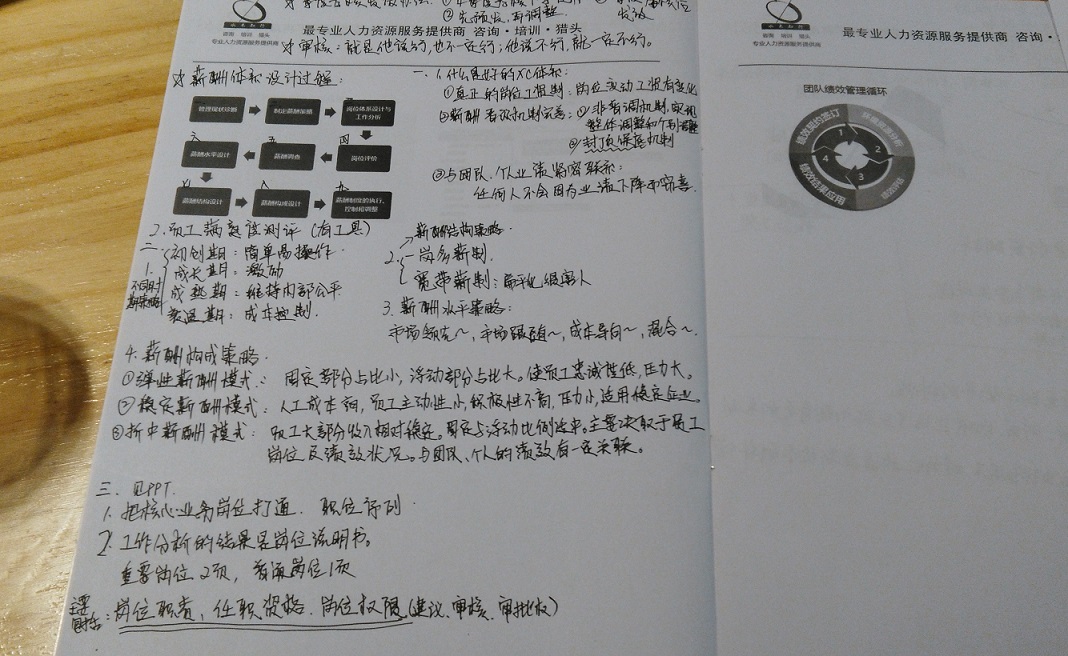 ②先预发,再调整.
发放
咨询 培训 猎头
专业人力资源服务提供商
最专业人力资源服务提供商 咨询·培训·猎头
审核:就是他说行,也不一定行;他说不行,就一定不行。
☆薪酬体系设计过程:
管理现状诊断
制定薪酬策略
岗位体系设计与工作分析
薪酬水平设计
薪酬调查
岗位评价
薪酬结构设计
薪酬构成设计
薪酬制度的执行、控制和调整
一.1.什么是好的XC体系:
①真正的岗位工资制:岗位变动工资有变化
整体调整和个别调整
③封顶保底机制
③与团队、个人业绩紧密联系:
任何人不会因为业绩下降而窃喜.
2.员工满意度测评(有工具)
二.
1.不同时期策略
初创期:简单易操作.
成长期:激励
成熟期:维持内部公平
衰退期:成本控制.
2.薪酬结构策略.
一岗多薪制.
宽带薪制:扁平化,很宽人
3.薪酬水平策略:
市场领先~,市场跟随~,成本导向~,混合~.
4.薪酬构成策略.
①弹性薪酬模式:固定部分占比小,浮动部分占比大。使员工忠诚性低,压力大。
②稳定薪酬模式:人工成本高,员工主动性小,积极性不高,压力小,适用稳定企业。
③折中薪酬模式:员工大部分收入相对稳定。固定与浮动比例适中。主要决取于员工
岗位及绩效状况。与团队、个人的绩效有一定关联。
三.见PPT.
1.把核心业务岗位打通.职位序列
2.工作分析的结果是岗位说明书。
重要岗位2页,普通岗位1页
主要包括:岗位职责,任职资格.岗位权限(建议、审核、审批权)
咨询 培训 猎头
专业人力资源服务提供商
最专业人力资源服务提供商 咨询·
团队绩效管理循环
绩效契约签订
绩效结果应用
1
2
3
4